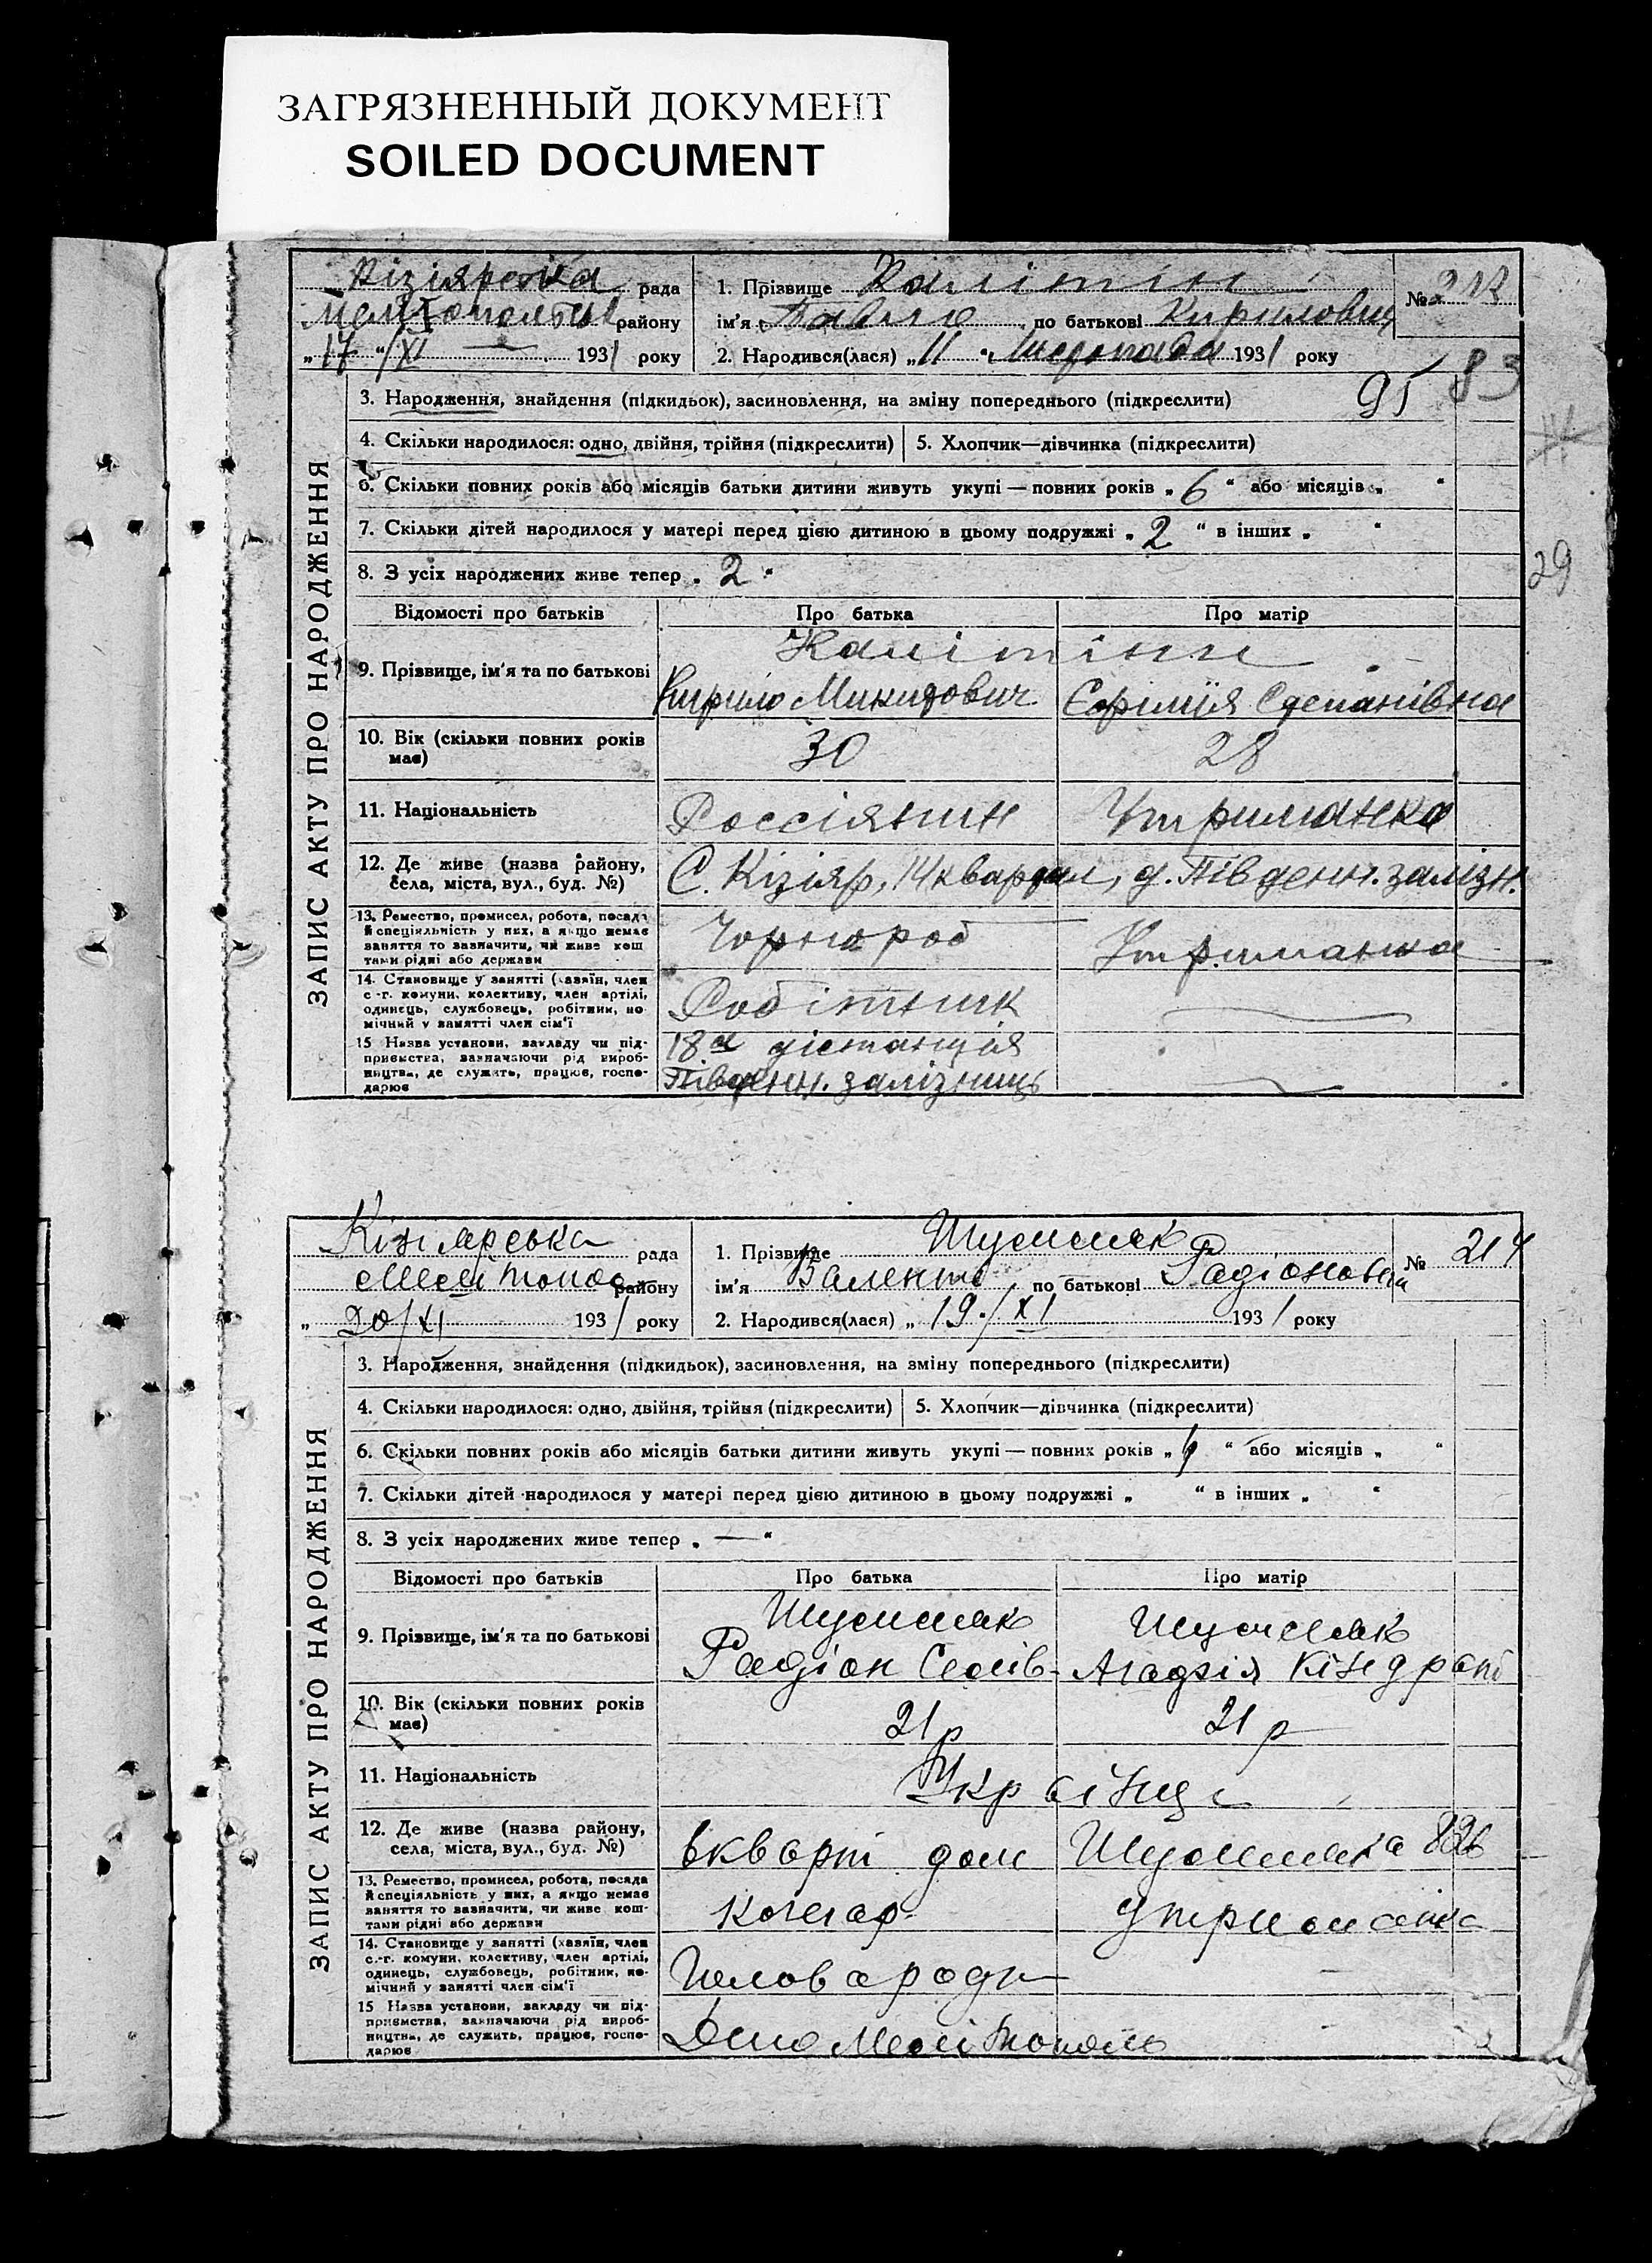 ЗАГРЯЗНЕННЫЙ ДОКУМЕНТ
SOILED DOCUMENT
ЗАПИС АКТУ ПРО НАРОДЖЕННЯ
Кізіярська рада
району
„17 “/XI 1931 року
1. Прізвище Калітін
ім'я Павло по батькові Кирилович
№ 213
2. Народився(лася) „11 “ Листопада 1931 року
95 83
3. Народження, знайдення (підкидьок), засиновлення, на зміну попереднього (підкреслити)
4. Скільки народилося: одно, двійня, трійня (підкреслити) 5. Хлопчик—дівчинка (підкреслити)
6. Скільки повних років або місяців батьки дитини живуть укупі — повних років „ 6 “ або місяців „ “
7. Скільки дітей народилося у матері перед цією дитиною в цьому подружжі „ 2 “ в інших „ “
29
8. З усіх народжених живе тепер „ 2 “
Відомості про батьків Про батька Про матір
9. Прізвище, ім'я та по батькові
Калітіни
Кирило Микитович Єфімія Степанівна
10. Вік (скільки повних років має) 30 28
11. Національність Россіянин Утриманка
12. Де живе (назва району, села, міста, вул., буд. №) С. Кізіяр, 14 квартал, д. Південн. залізн.
13. Ремество, промисел, робота, посада й спеціяльність у них, а якщо немає заняття то зазначити, чи живе коштами рідні або держави Чорнороб Утриманка
14. Становище у занятті (хазяїн, член с.-г. комуни, колективу, член артілі, одинець, службовець, робітник, помічний у занятті член сім'ї Робітник
15 Назва установи, закладу чи підприємства, зазначаючи рід виробництва, де служить, працює, господарює 18а дістанція
Південн. залізниць
ЗАПИС АКТУ ПРО НАРОДЖЕННЯ
Кізіярська рада
Мелітопос району
„ 20/XI 1931 року
1. Прізвище
ім'я Валенти по батькові Радіонови
№ 214
2. Народився(лася) „ 19/XI 1931 року
3. Народження, знайдення (підкидьок), засиновлення, на зміну попереднього (підкреслити)
4. Скільки народилося: одно, двійня, трійня (підкреслити) 5. Хлопчик—дівчинка (підкреслити)
6. Скільки повних років або місяців батьки дитини живуть укупі — повних років „ “ або місяців „ “
7. Скільки дітей народилося у матері перед цією дитиною в цьому подружжі „ “ в інших „ “
8. З усіх народжених живе тепер „ — “
Відомості про батьків Про батька Про матір
9. Прізвище, ім'я та по батькові
Радіон Агафія Кіндрат
10. Вік (скільки повних років має) 21р 21р
11. Національність Українці
12. Де живе (назва району, села, міста, вул., буд. №) дом
13. Ремество, промисел, робота, посада й спеціяльність у них, а якщо немає заняття то зазначити, чи живе коштами рідні або держави Кочегар
14. Становище у занятті (хазяїн, член с.-г. комуни, колективу, член артілі, одинець, службовець, робітник, помічний у занятті член сім'ї
15 Назва установи, закладу чи підприємства, зазначаючи рід виробництва, де служить, працює, господарює Депо Мелітополь